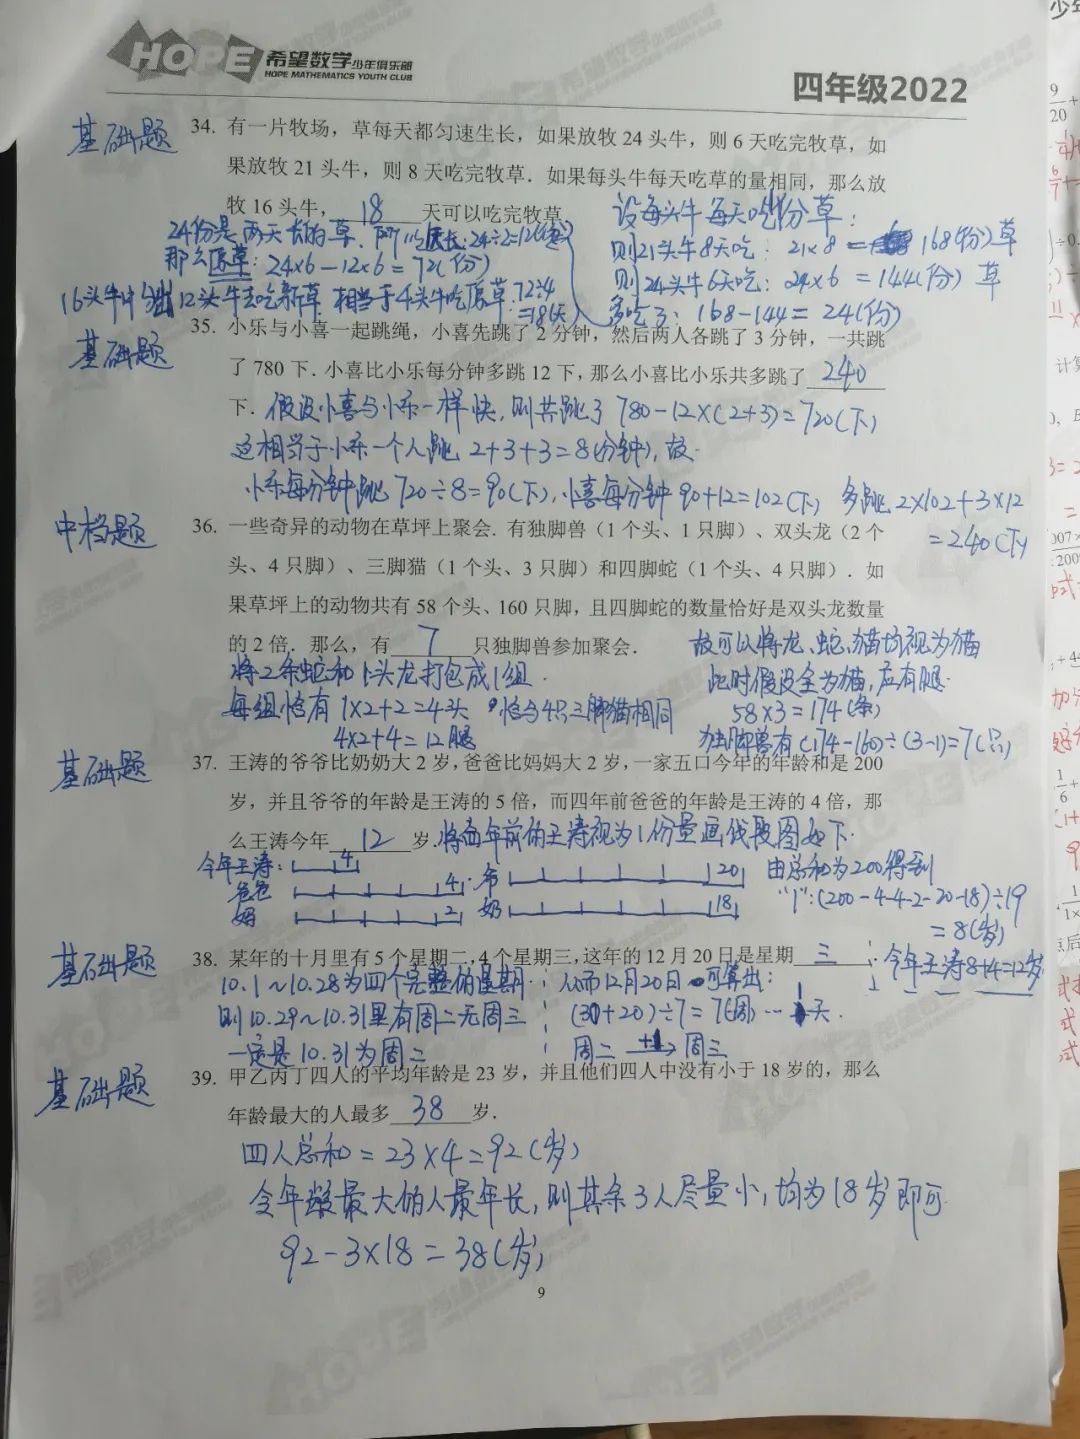 HOPE 希望数学少年俱乐部
HOPE MATHEMATICS YOUTH CLUB
四年级2022
基础题
34. 有一片牧场，草每天都匀速生长，如果放牧 24 头牛，则 6 天吃完牧草，如
果放牧 21 头牛，则 8 天吃完牧草．如果每头牛每天吃草的量相同，那么放
牧 16 头牛，18天可以吃完牧草．
设每头牛每天吃1份草：
则21头牛8天吃：21×8=168(份)草
则24头牛6天吃：24×6=144(份)草
多吃了：168-144=24(份)
24份是两天长的草，所以长：24÷2=12(份)
那么原草：24×6-12×6=72(份)
16头牛中分出12头牛去吃新草，相当于4头牛吃原草：72÷4
=18(天)
基础题
35. 小乐与小喜一起跳绳，小喜先跳了 2 分钟，然后两人各跳了 3 分钟，一共跳
了 780 下．小喜比小乐每分钟多跳 12 下，那么小喜比小乐共多跳了240
下．假设小喜与小乐一样快，则共跳了 780-12×(2+3)=720(下)
这相当于小乐一个人跳 2+3+3=8(分钟)，故
小乐每分钟跳 720÷8=90(下)，小喜每分钟 90+12=102(下) 多跳 2×102+3×12
=240(下)
中档题
36. 一些奇异的动物在草坪上聚会．有独脚兽（1 个头、1 只脚）、双头龙（2 个
头、4 只脚）、三脚猫（1 个头、3 只脚）和四脚蛇（1 个头、4 只脚）．如
果草坪上的动物共有 58 个头、160 只脚，且四脚蛇的数量恰好是双头龙数量
的 2 倍．那么，有7只独脚兽参加聚会．
将2条蛇和1头龙打包成1组．
每组恰有 1×2+2=4头，恰与4只三脚猫相同
4×2+4=12腿
故可以将龙、蛇、猫均视为猫
此时假设全为猫，应有腿
58×3=174(条)
独脚兽有(174-160)÷(3-1)=7(只)
基础题
37. 王涛的爷爷比奶奶大 2 岁，爸爸比妈妈大 2 岁，一家五口今年的年龄和是 200
岁，并且爷爷的年龄是王涛的 5 倍，而四年前爸爸的年龄是王涛的 4 倍，那
么王涛今年12岁．将四年前的王涛视为1份量画线段图如下．
今年王涛： 4
爸爸 4
妈 2
爷 20
奶 18
由总和为200得到
"1"：(200-4-4-2-20-18)÷19
=8(岁)
今年王涛8+4=12岁
基础题
38. 某年的十月里有 5 个星期二，4 个星期三，这年的 12 月 20 日是星期三．
10.1~10.28为四个完整的星期
则10.29~10.31里有周二无周三
一定是10.31为周二
从而12月20日可算出：
(30+20)÷7=7(周)…1天．
周二 +1→ 周三
基础题
39. 甲乙丙丁四人的平均年龄是 23 岁，并且他们四人中没有小于 18 岁的，那么
年龄最大的人最多38岁．
四人总和=23×4=92(岁)
令年龄最大的人最年长，则其余3人尽量小，均为18岁即可
92-3×18=38(岁)
9